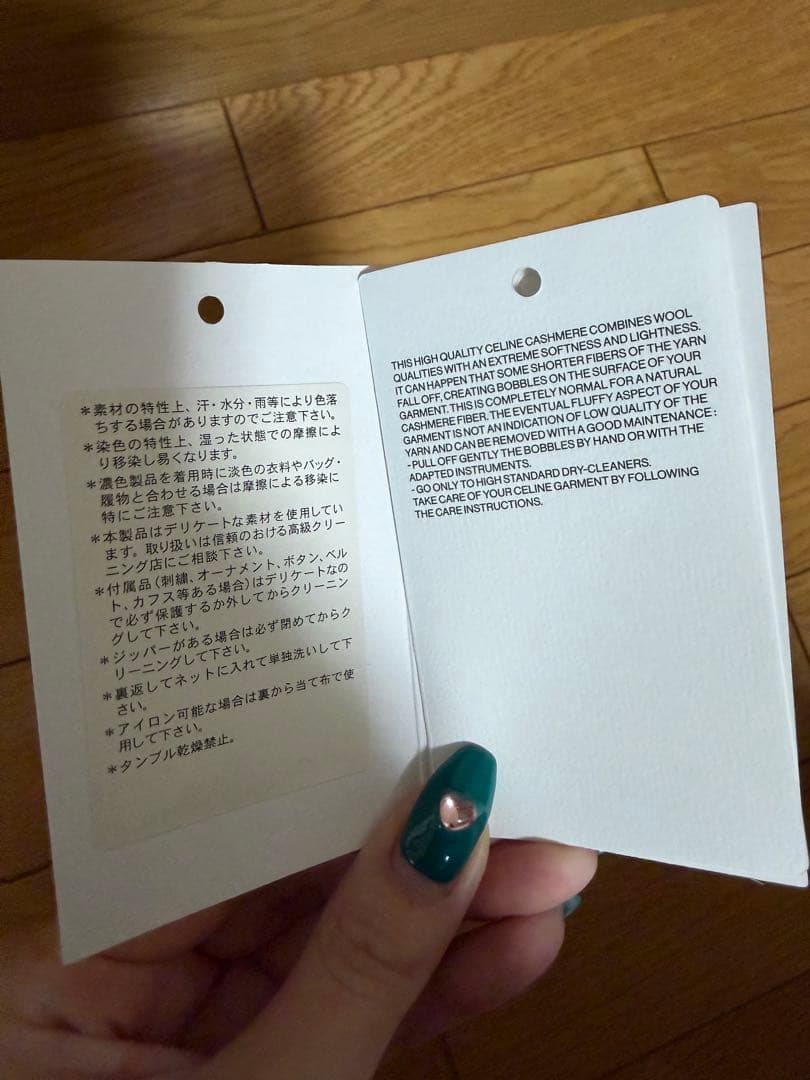 ＊素材の特性上、汗・水分・雨等により色落
ちする場合がありますのでご注意下さい。
＊染色の特性上、湿った状態での摩擦によ
り移染し易くなります。
＊濃色製品を着用時に淡色の衣料やバッグ・
履物と合わせる場合は摩擦による移染に
特にご注意下さい。
＊本製品はデリケートな素材を使用してい
ます。取り扱いは信頼のおける高級クリー
ニング店にご相談下さい。
＊付属品（刺繍、オーナメント、ボタン、ベル
ト、カフス等ある場合）はデリケートなの
で必ず保護するか外してからクリーニン
グして下さい。
＊ジッパーがある場合は必ず閉めてからク
リーニングして下さい。
＊裏返してネットに入れて単独洗いして下
さい。
＊アイロン可能な場合は裏から当て布で使
用して下さい。
＊タンブル乾燥禁止。
THIS HIGH QUALITY CELINE CASHMERE COMBINES WOOL
QUALITIES WITH AN EXTREME SOFTNESS AND LIGHTNESS.
IT CAN HAPPEN THAT SOME SHORTER FIBERS OF THE YARN
FALL OFF, CREATING BOBBLES ON THE SURFACE OF YOUR
GARMENT. THIS IS COMPLETELY NORMAL FOR A NATURAL
CASHMERE FIBER. THE EVENTUAL FLUFFY ASPECT OF YOUR
GARMENT IS NOT AN INDICATION OF LOW QUALITY OF THE
YARN AND CAN BE REMOVED WITH A GOOD MAINTENANCE :
- PULL OFF GENTLY THE BOBBLES BY HAND OR WITH THE
ADAPTED INSTRUMENTS.
- GO ONLY TO HIGH STANDARD DRY-CLEANERS.
TAKE CARE OF YOUR CELINE GARMENT BY FOLLOWING
THE CARE INSTRUCTIONS.